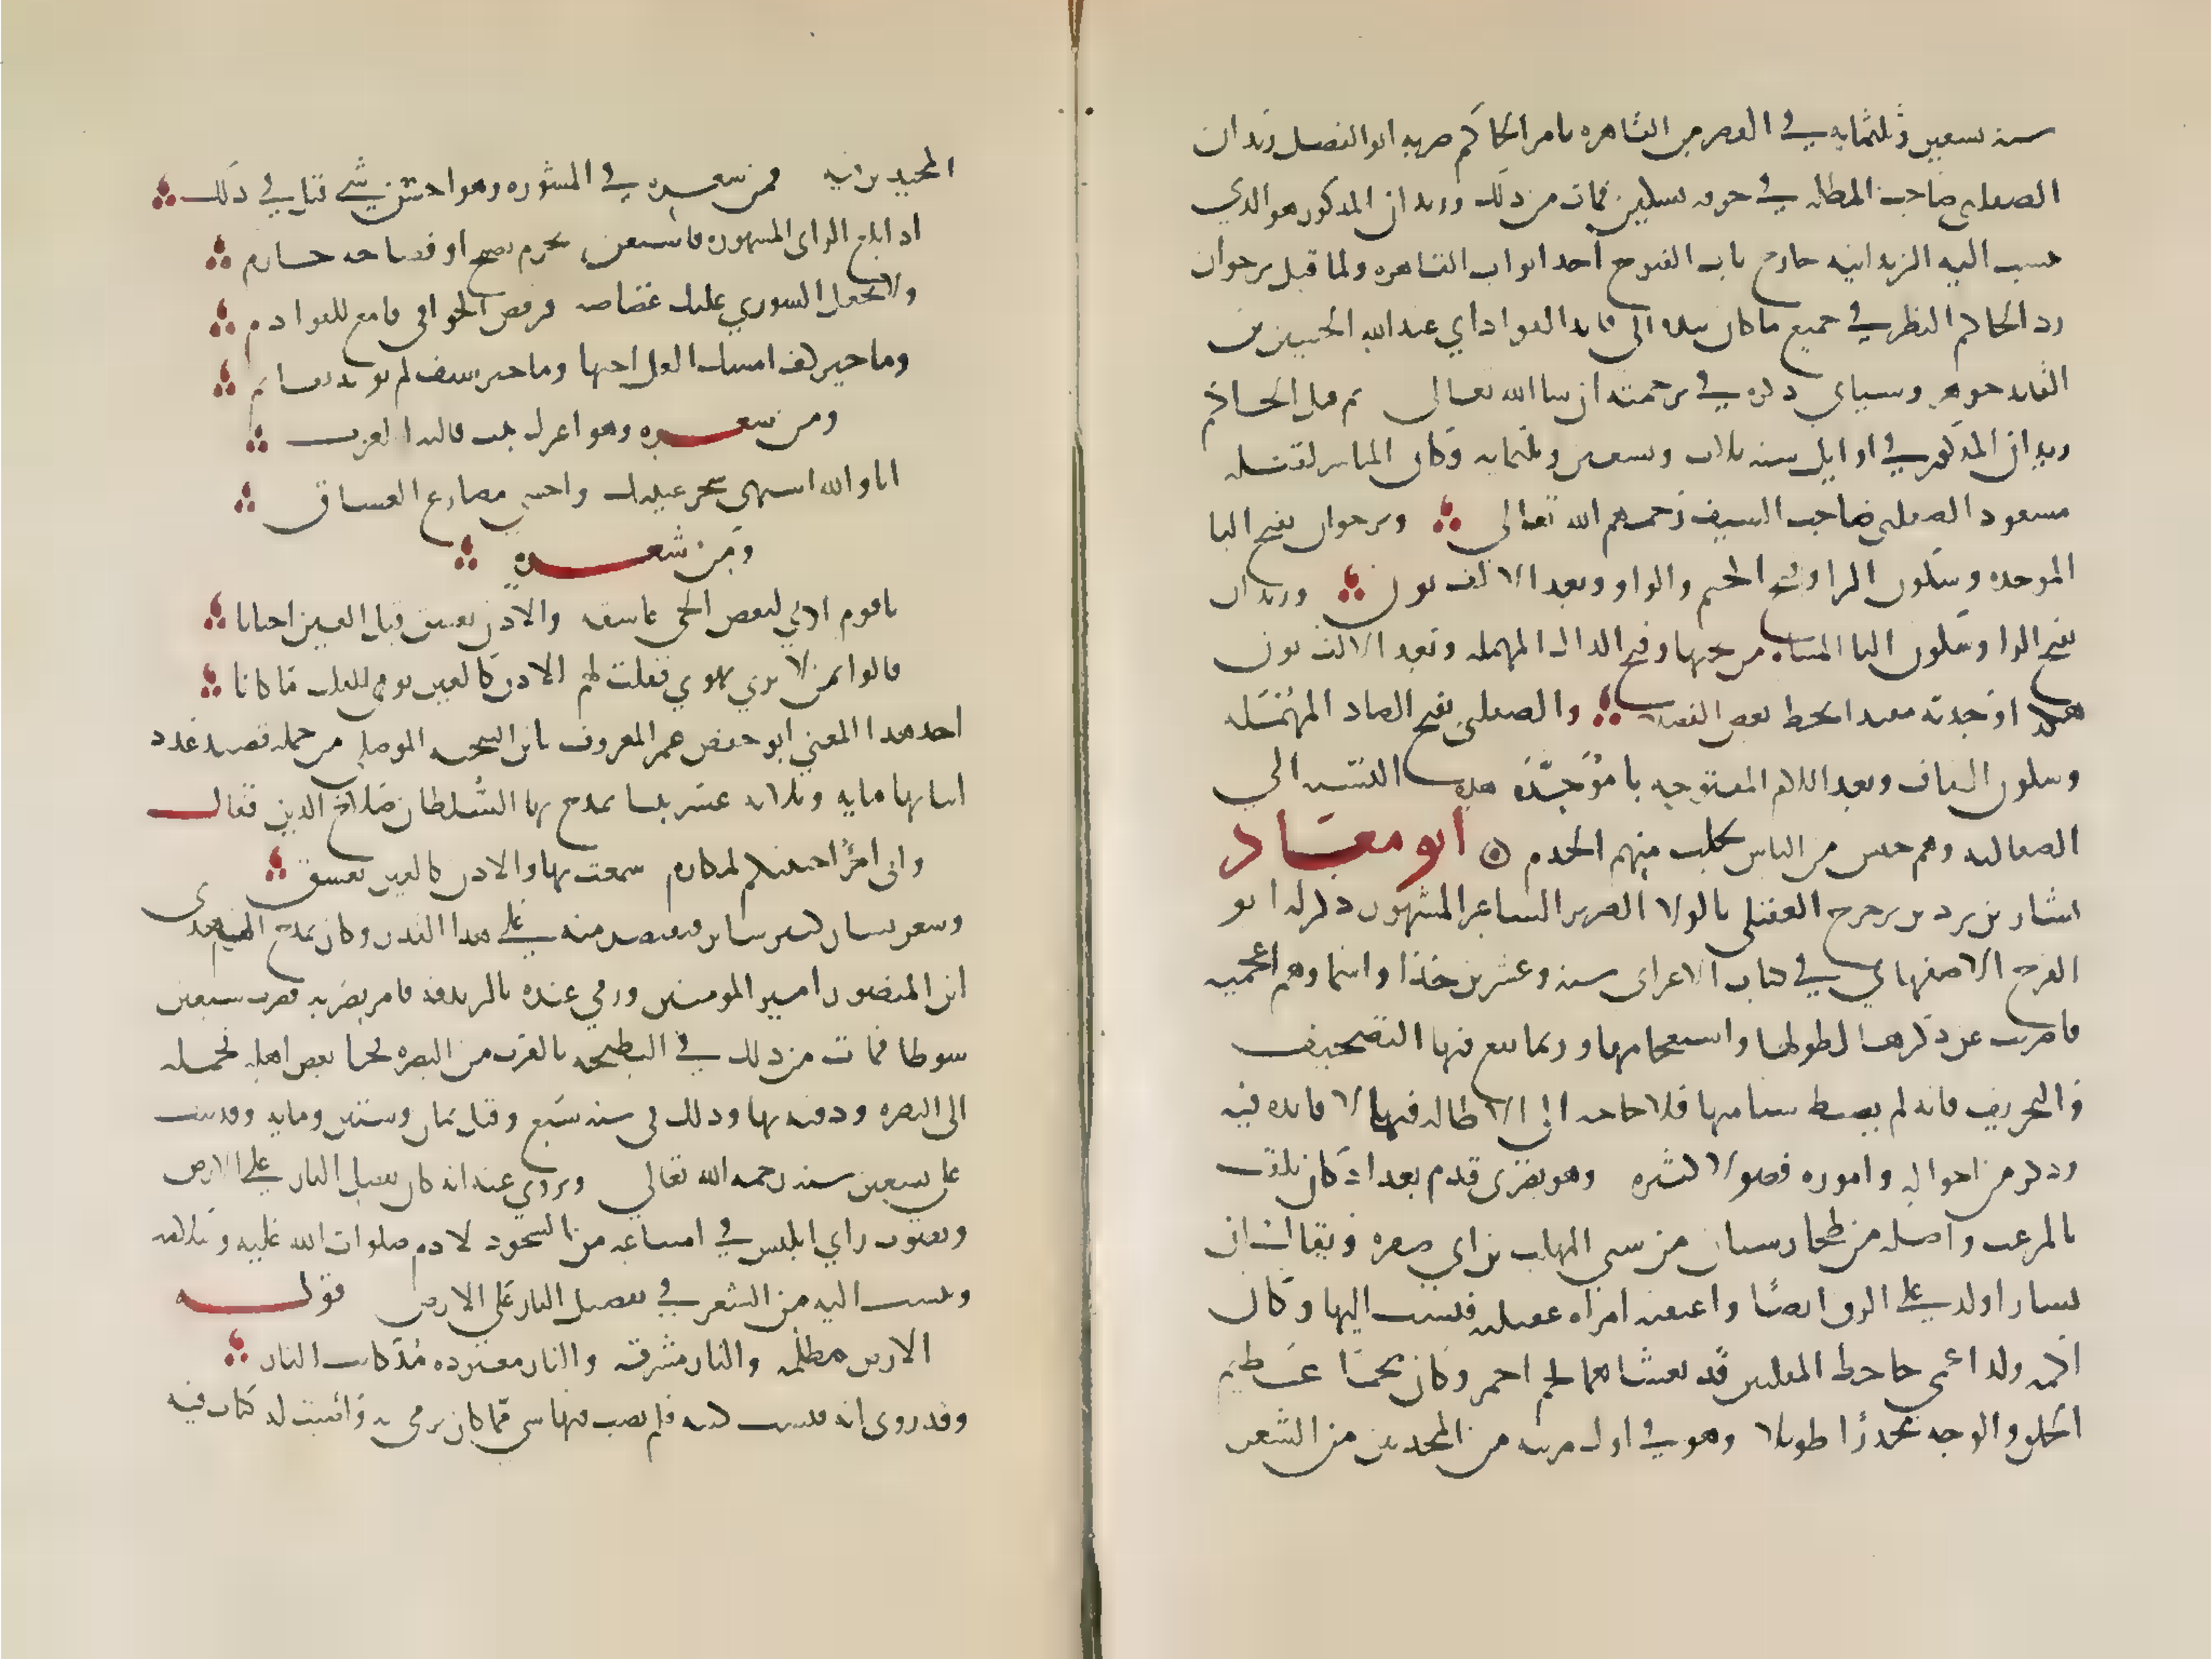 سنة تسعين وثلثمايه في القصر من القاهره بامر الحاكم ضربه ابو الفضل ريدان
الصقلبي صاحب المظله في جوفه بسكين فمات من ذلك وريدان المذكور هو الذي
ينسب اليه الريدانيه خارج باب الفتوح احد ابواب القاهره ولما قتل برجوان
رد الحاكم النظر في جميع ما كان بيده الى قايد القواد ابي عبد الله الحسين بن
القايد جوهر وسياتي ذكره في ترجمته ان شا الله تعالى ثم قتل الحاكم
ريدان المذكور في اوايل سنه ثلاث وتسعين وثلثمايه وكان المباشر لقتله
مسعود الصقلبي صاحب السيف رحمهم الله تعالى وبرجوان بفتح البا
الموحده وسكون الرا وفتح الجيم والواو وبعد الالف نون وريدان
بفتح الرا وسكون اليا المثناه من تحتها وفتح الدال المهمله وبعد الالف نون
هكذا وجدته مقيدا بخط بعض الفضلا والصقلبي بفتح الصاد المهمله
وسكون القاف وبعد اللام المفتوحه با موحده هذه النسبه الى
الصقالبه وهم جنس من الناس يجلب منهم الخدم ابو معاد
بشار بن برد بن يرجوخ العقيلي بالولا الضرير الشاعر المشهور ذكر له ابو
الفرج الاصفهاني في كتاب الاغاني سته وعشرين جدا واسماوهم اعجميه
فاضربت عن ذكرها لطولها واستعجامها وربما يقع فيها التصحيف
والتحريف فانه لم يضبط شيا منها فلا حاجه الى الاطاله فيها بلا فايده فيه
وذكر من احواله واموره فصولا كثيره وهو بصري قدم بغداد كان يلقب
بالمرعث واصله من طخارستان من سبي المهلب بن ابي صفره ويقال ان
بشار اولد على الرق ايضا واعتقته امراه عقيليه فنسب اليها وكان
اكمه ولد اعمى جاحظ المقلتين قد تغشاهما لحم احمر وكان ضخما عظيم
الخلق والوجه مجدرا طويلا وهو في اول مرتبه من المحدثين من الشعرا
المجيدين فيه فمن شعره في المشوره وهو احسن شي قيل في ذلك
اذا بلغ الراي المشوره فاستعن بحزم نصيح او فصاحه حازم
ولا تجعل الشوري عليك غضاضه فريش الخوافي تابع للقوادم
وما خير كف امسك الغل اختها وما خير سيف لم يويد بقايم
ومن شعره وهو اغزل بيت قاله العرب
انا والله اشتهي سحر عينيك واخشى مصارع العشاق
ومن شعره
يا قوم اذني لبعض الحي عاشقه والاذن تعشق قبل العين احيانا
قالوا بمن لا ترى تهوي فقلت لهم الاذن كالعين توفي القلب ما كانا
اخذ هذا المعني ابو حفص عمر المعروف بابن الشحنه الموصلي من جمله قصيده عدد
ابياتها مايه وثلاثه عشر بيتا يمدح بها السلطان صلاح الدين فقال
واني امرؤ احببتكم لمكارم سمعت بها والاذن كالعين تعشق
وشعر بشار كثير ساير فنقتصر منه على هذا القدر وكان يمدح المهدى
ابن المنصور امير المومنين ورمي عنده بالزندقه فامر بضربه فضرب سبعين
سوطا فمات من ذلك في البطيحه بالقرب من البصره فجا بعض اهله فحمله
الى البصره ودفنه بها وذلك في سنه سبع وقيل ثمان وستين ومايه وقد نيف
على تسعين سنه رحمه الله تعالي ويروي عنه انه كان يفضل النار على الارض
ويصوب راي ابليس في امتناعه من السجود لادم صلوات الله عليه وسلامه
وينسب اليه من الشعر في تفضيل النار على الارض قوله
الارض مظلمه والنار مشرقه والنار معبوده مذ كانت النار
وقد روى انه فتشت كتبه فلم يصب فيها شي مما كان يرمى به واصيب له كتاب فيه